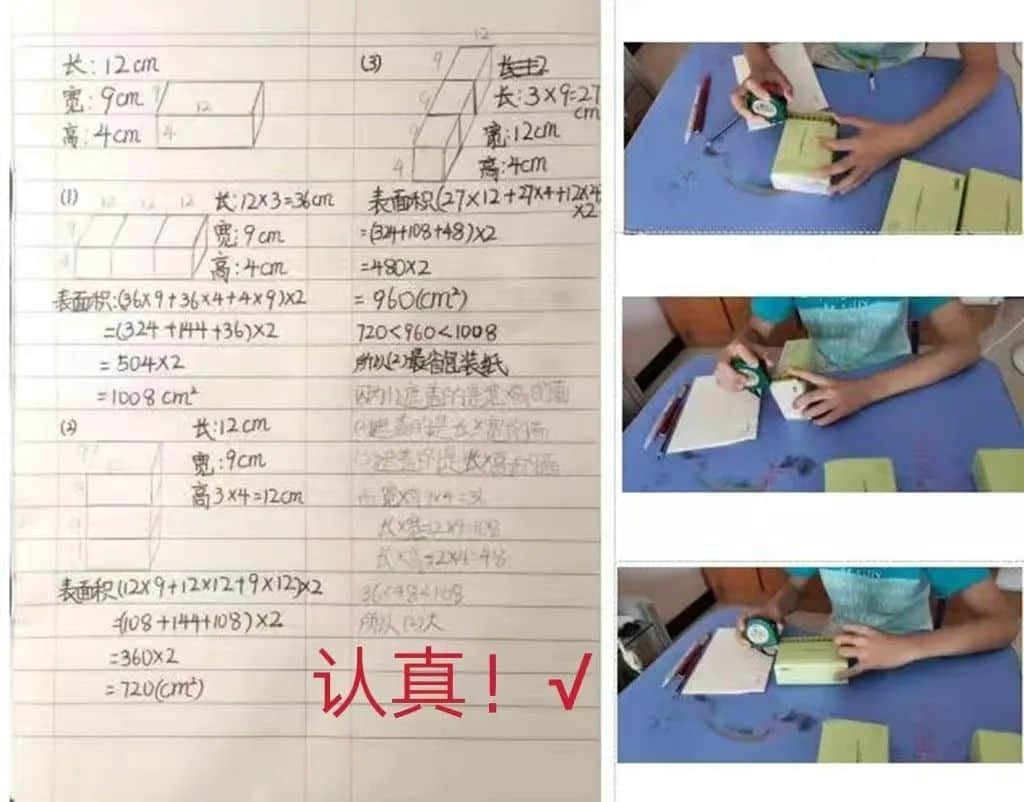 长:12cm
宽:9cm
高:4cm
9
12
4
(1)
12 12 12
9
4
长:12×3=36cm
宽:9cm
高:4cm
表面积:(36×9+36×4+4×9)×2
=(324+144+36)×2
=504×2
=1008cm²
(2)
长:12cm
宽:9cm
高3×4=12cm
表面积(12×9+12×12+9×12)×2
=(108+144+108)×2
=360×2
=720(cm²)
(3)
12
9
9
9
4
长:3×9=27cm
宽:12cm
高:4cm
表面积(27×12+27×4+12×4)×2
=(324+108+48)×2
=480×2
=960(cm²)
720<960<1008
所以(2)最省包装纸
长×宽=12×9=108
长×高=12×4=48
36<48<108
所以(2)大
认真!√